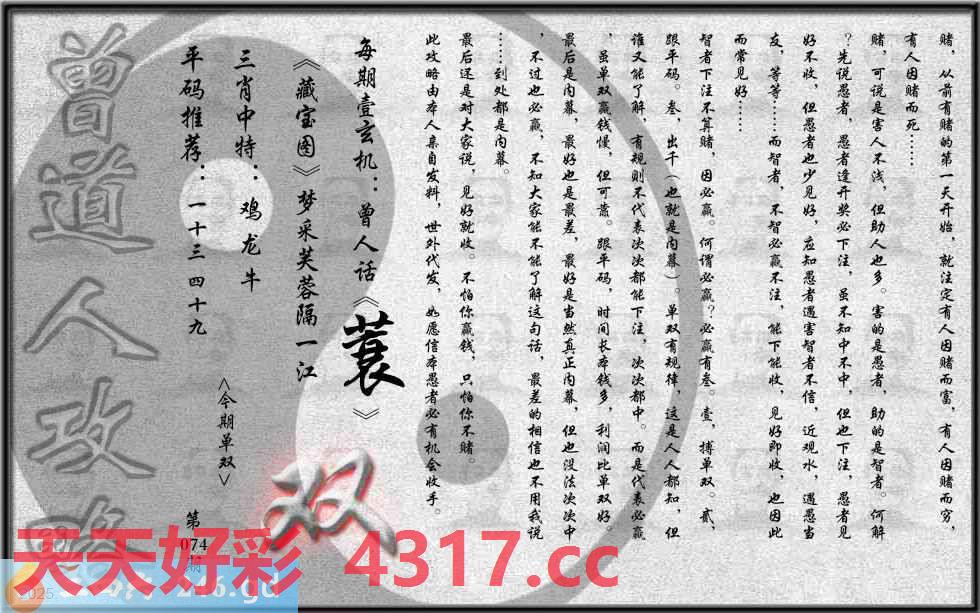 赌，从前有赌的第一天开始，就注定有人因赌而富，有人因赌而穷，
有人因赌而死……
赌，可说是害人不浅，但助人也多。害的是愚者，助的是智者。何解
？先说愚者，愚者逢开奖必下注，虽不知中不中，但也下注，愚者见
好不收，但愚者也少见好，应知愚者遇害智者不信，近观水，遇愚当
友，等等……而智者，不智必赢不注，能下能收，见好即收，也因此
而常见好……
智者下注不算赌，因必赢。何谓必赢？必赢有叁。壹，搏单双。贰，
跟平码。叁，出千（也就是内幕）。单双有规律，这是人人都知，但
谁又能了解，有规则不代表次次都能下注，次次都中。而是代表必赢
，虽单双赢钱慢，但可靠。跟平码，时间长本钱多，利润比单双好。
最后是内幕，最好也是最差，最好是当然真正内幕，但也没法次次中
，不过也必赢，不知大家能不能了解这句话，最差的相信也不用我说
……到处都是内幕。
最后还是对大家说，见好就收。不怕你赢钱，只怕你不赌。
此攻略由本人亲自发料，世外代发，如愿信本愚者必有机会收手。
每期壹玄机：曾人话《蓑》
《藏宝图》梦采芙蓉隔一江
三肖中特：鸡龙牛
平码推荐：一十三四十九
<今期单双>
双
第074期
曾道人攻略
天天好彩 4317.cc
2025
246.gd